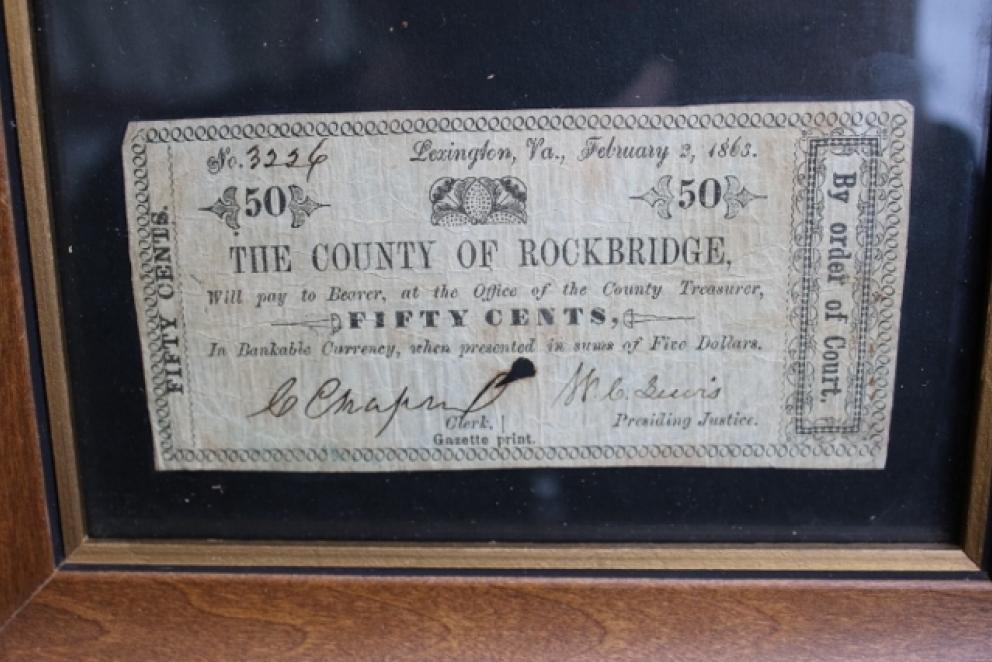 No. 3226 Lexington, Va., February 2, 1863.
50 50
THE COUNTY OF ROCKBRIDGE,
Will pay to Bearer, at the Office of the County Treasurer,
FIFTY CENTS,
In Bankable Currency, when presented in sums of Five Dollars.
C Chapin W. C. Lewis
Clerk. Presiding Justice.
Gazette print.
FIFTY CENTS.
By order of Court.